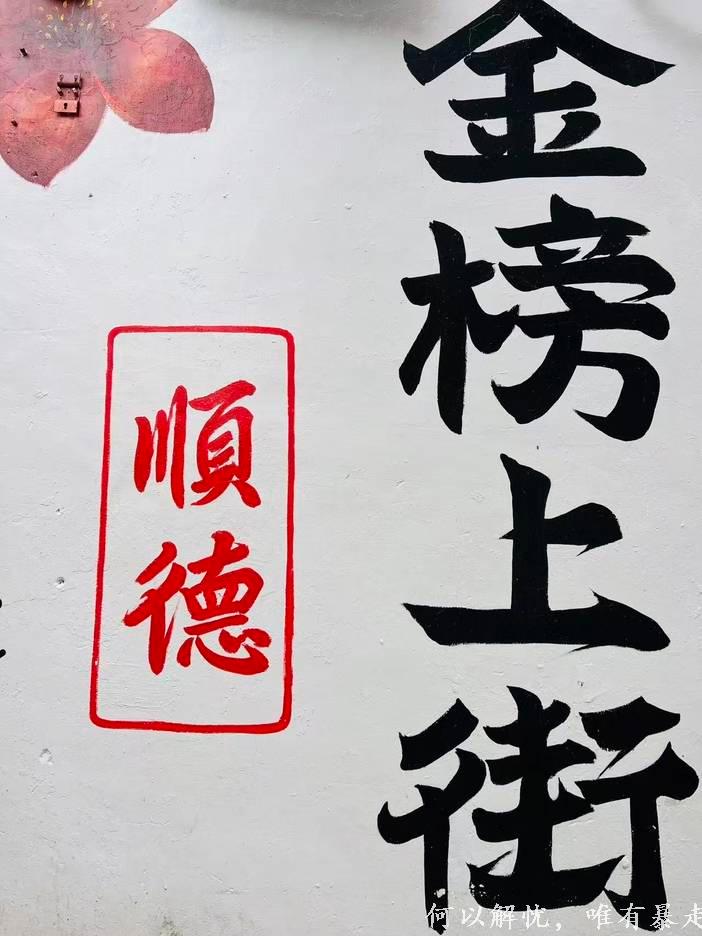 金榜上街
順德
何以解忧，唯有暴走